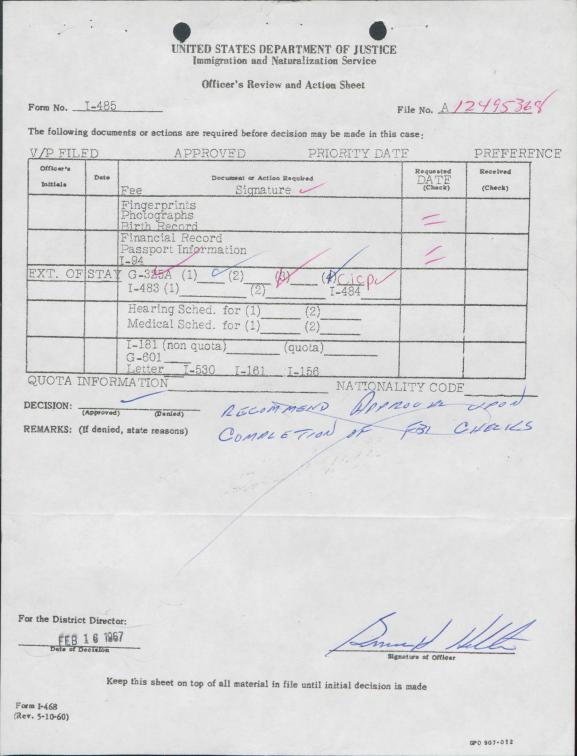 UNITED STATES DEPARTMENT OF JUSTICE
Immigration and Naturalization Service
Officer's Review and Action Sheet
Form No. I-485
File No. A 12495368
The following documents or actions are required before decision may be made in this case:
V/P FILED APPROVED PRIORITY DATE PREFERENCE
Officer's Initials Date Document or Action Required Requested DATE (Check) Received (Check)
Fee Signature
Fingerprints
Photographs
Birth Record
Financial Record
Passport Information
I-94
EXT. OF STAY G-325A (1) (2) (3) (4)
I-483 (1) (2) I-484
Hearing Sched. for (1) (2)
Medical Sched. for (1) (2)
I-181 (non quota) (quota)
G-601
Letter I-530 I-161 I-156
QUOTA INFORMATION NATIONALITY CODE
DECISION: (Approved) (Denied)
RECOMMEND APPROVAL UPON
REMARKS: (If denied, state reasons)
COMPLETION OF FBI CHECKS
For the District Director:
FEB 16 1967
Date of Decision
Signature of Officer
Keep this sheet on top of all material in file until initial decision is made
Form I-468
(Rev. 5-10-60)
GPO 907-012